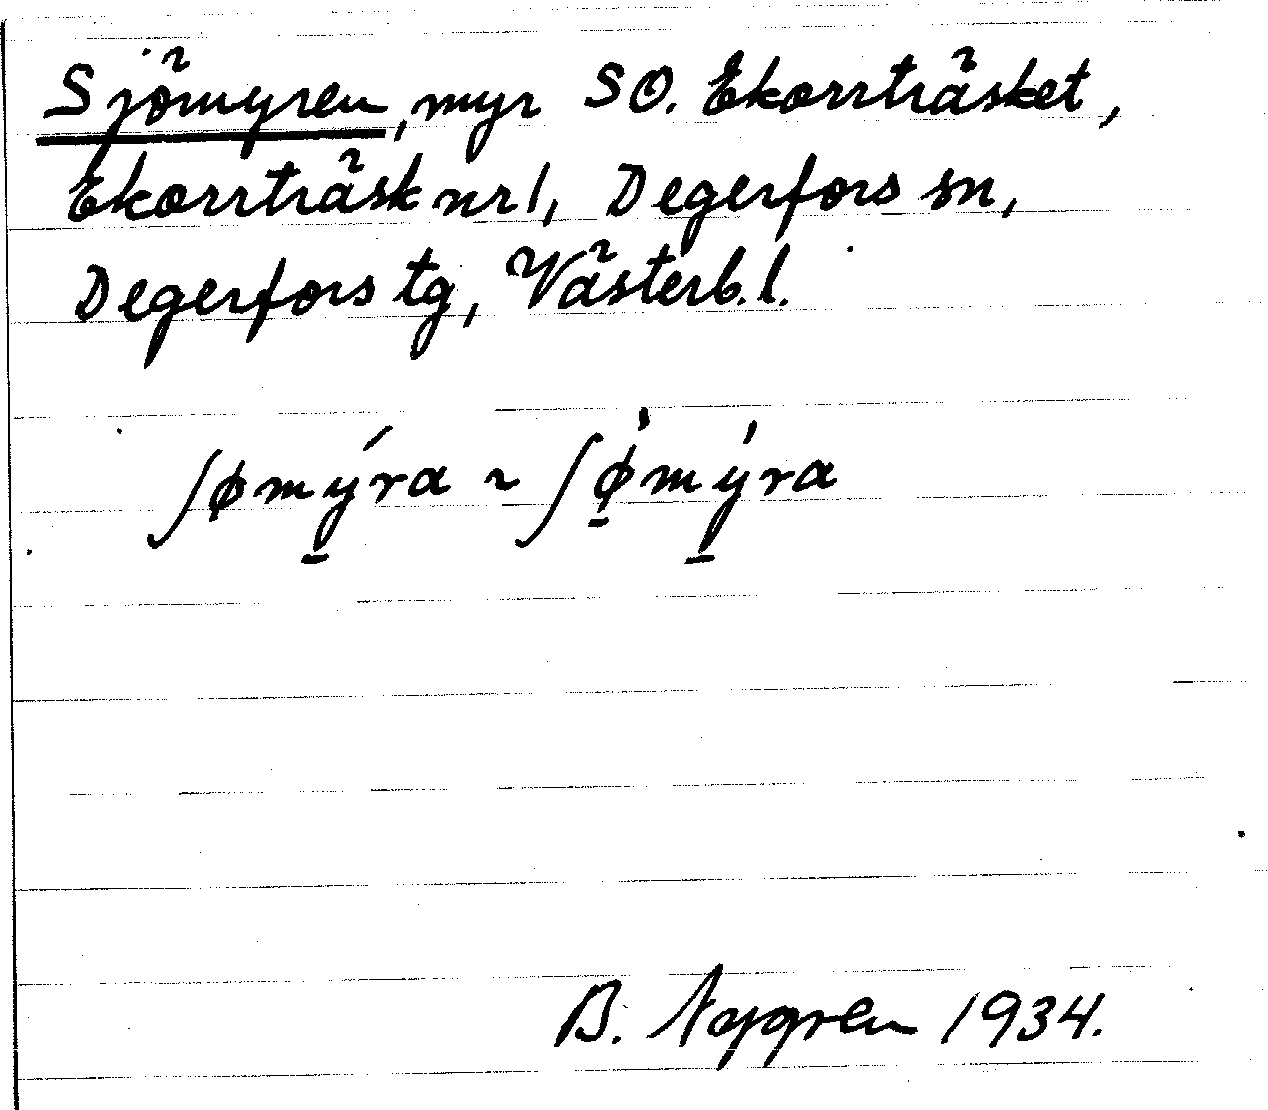 Sjömyren, myr SO. Ekorrträsket,
Ekorrträsk nr 1, Degerfors sn,
Degerfors tg, Västerb. l.
ʃømý̠ra ~ ʃø̠̍mý̠ra
B. Nygren 1934.